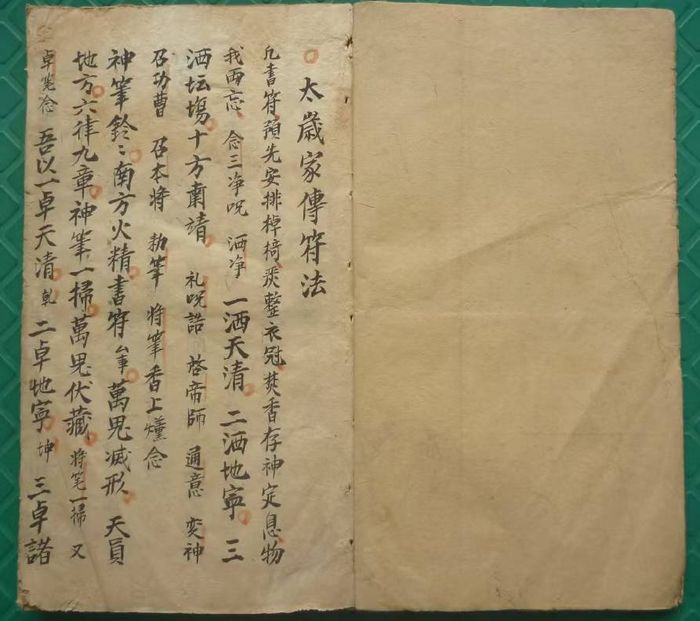 太歲家傳符法
凢書符預先安排棹椅 整衣冠焚香存神定息物
我両忘 念三净呪 洒净 一洒天清 二洒地寧 三
洒坛塲十方肅靖 礼呪誥 啓帝師 通意 变神
召功曹 召本將 勑筆 将筆香上燻念
神筆鈴〻南方火精書符 萬鬼滅形 天員
地方六律九章神筆一掃萬鬼伏藏 将笔一掃 又
卓笔念 吾以一卓天清 乾 二卓地寧 坤 三卓諸